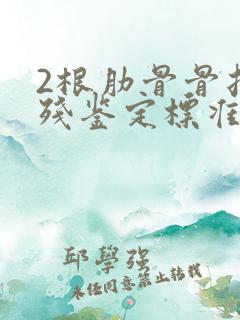 2根肋骨骨折
残鉴定標准
邱學强
未经同意禁止转载